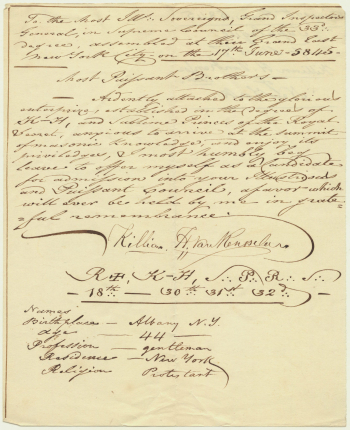 To the Most Ill∴ Sovereigns, Grand Inspectors
General, in Supreme Council of the 33d:
degree, assembled at their Grand East
New York City on the 17th June - 5845 -
Most Puissant Brothers -
- Ardently attached to the glorious
enterprize, established in the degrees of
K-H, and Sublime Prince of the Royal
Secret, anxious to arrive at the summit
of masonic knowledge, and enjoy its
priviledges, I most humbly beg
leave to offer myself as a Candidate
for admission into your Illustrious
and Puissant Council, a favor which
will ever be held by me in grate-
ful remembrance.
Killian H. Van Rensselaer
R+, K-H, S∴ P∴ R∴ S∴
18th — 30th 31st 32d
Names
Birthplace — Albany N.Y.
Age — 44 —
Profession — gentleman
Residence — New York
Religion Protestant